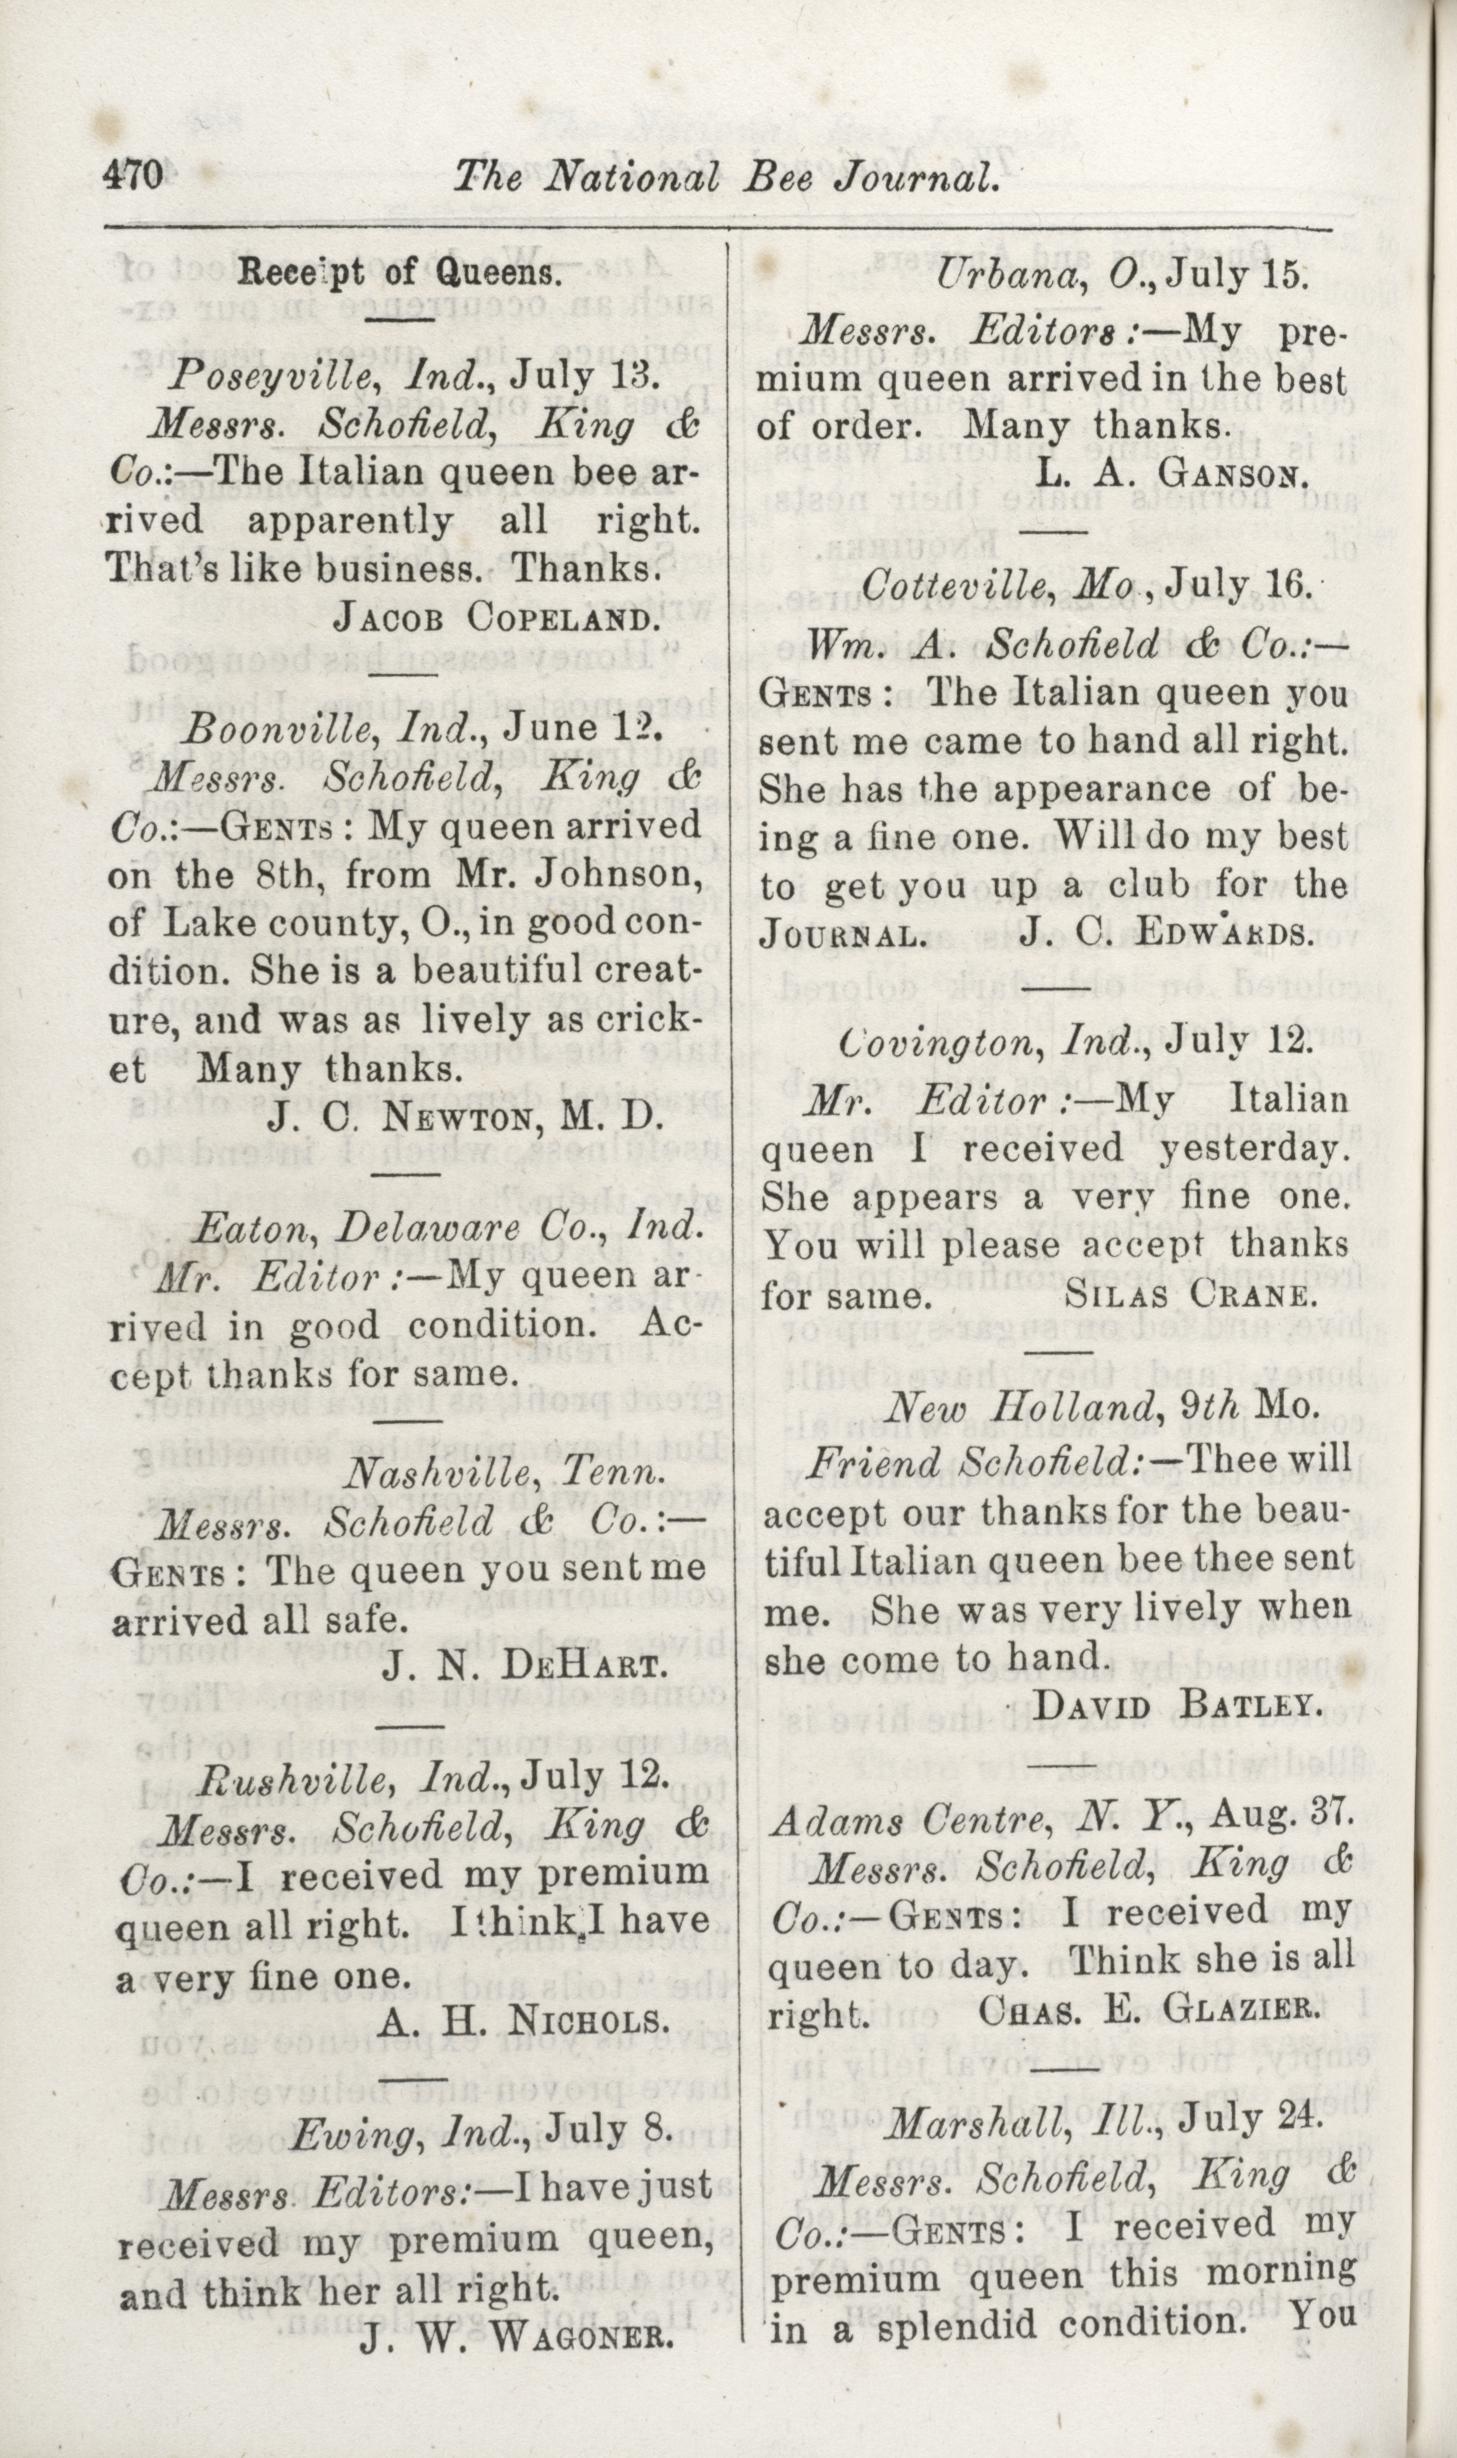 470
The National Bee Journal.
Receipt of Queens.
Poseyville, Ind., July 13.
Messrs. Schofield, King &
Co.:—The Italian queen bee ar-
rived apparently all right.
That's like business. Thanks.
JACOB COPELAND.
Boonville, Ind., June 12.
Messrs. Schofield, King &
Co.:—GENTS: My queen arrived
on the 8th, from Mr. Johnson,
of Lake county, O., in good con-
dition. She is a beautiful creat-
ure, and was as lively as crick-
et Many thanks.
J. C. NEWTON, M. D.
Eaton, Delaware Co., Ind.
Mr. Editor:—My queen ar-
rived in good condition. Ac-
cept thanks for same.
Nashville, Tenn.
Messrs. Schofield & Co.:—
GENTS: The queen you sent me
arrived all safe.
J. N. DEHART.
Rushville, Ind., July 12.
Messrs. Schofield, King &
Co.:—I received my premium
queen all right. I think I have
a very fine one.
A. H. NICHOLS.
Ewing, Ind., July 8.
Messrs. Editors:—I have just
received my premium queen,
and think her all right.
J. W. WAGONER.
Urbana, O., July 15.
Messrs. Editors:—My pre-
mium queen arrived in the best
of order. Many thanks.
L. A. GANSON.
Cotteville, Mo., July 16.
Wm. A. Schofield & Co.:—
GENTS: The Italian queen you
sent me came to hand all right.
She has the appearance of be-
ing a fine one. Will do my best
to get you up a club for the
JOURNAL. J. C. EDWARDS.
Covington, Ind., July 12.
Mr. Editor:—My Italian
queen I received yesterday.
She appears a very fine one.
You will please accept thanks
for same. SILAS CRANE.
New Holland, 9th Mo.
Friend Schofield:—Thee will
accept our thanks for the beau-
tiful Italian queen bee thee sent
me. She was very lively when
she come to hand.
DAVID BATLEY.
Adams Centre, N. Y., Aug. 37.
Messrs. Schofield, King &
Co.:—GENTS: I received my
queen to day. Think she is all
right. CHAS. E. GLAZIER.
Marshall, Ill., July 24.
Messrs. Schofield, King &
Co.:—GENTS: I received my
premium queen this morning
in a splendid condition. You